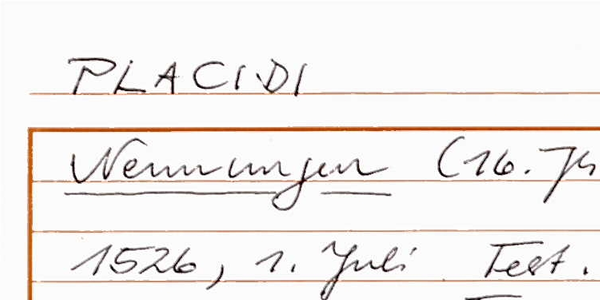 PLACIDI
Nennungen (16. Jh
1526, 1. Juli Test.